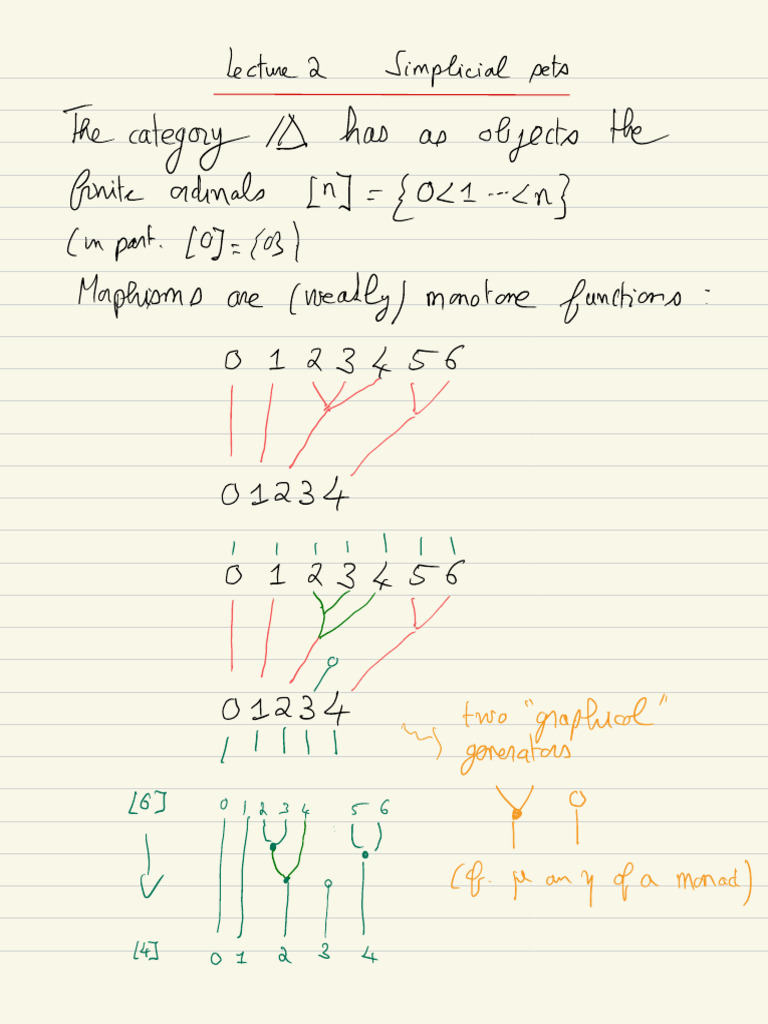 Lecture 2 Simplicial sets
The category Δ has as objects the
finite ordinals [n] = {0<1 ... <n}
(in part. [0] = {0})
Morphisms are (weakly) monotone functions :
0 1 2 3 4 5 6
0 1 2 3 4
0 1 2 3 4 5 6
0 1 2 3 4
two "graphical"
generators
[6] 0 1 2 3 4 5 6
(cf. μ an η of a monad)
[4] 0 1 2 3 4